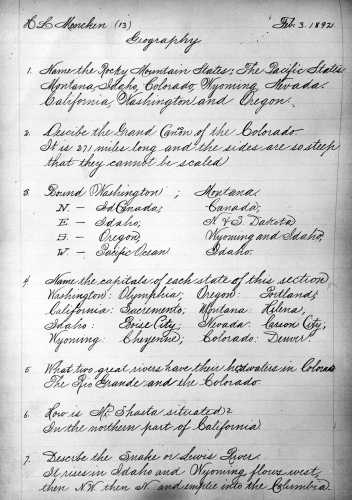 H L Mencken (13) Feb. 3. 1892
Geography
1. Name the Rocky Mountain States; The Pacific States
Montana, Idaho, Colorado, Wyoming, Nevada.
California, Washington and Oregon.
2. Describe the Grand Canon of the Colorado.
It is 271 miles long and the sides are so steep
that they cannot be scaled
3. Bound Washington ; Montana
N – Canada; Canada,
E – Idaho, N & S. Dakota
S – Oregon, Wyoming and Idaho,
W – Pacific Ocean Idaho.
4. Name the capitals of each state of this section
Washington: Olymphia; Oregon: Portland;
California: Sacremento; Montana Helena,
Idaho: Boise City; Nevada: Carson City;
Wyoming: Cheyenne; Colorado: Denver.
5. What two great rivers have their headwaters in Colorado
The Rio Grande and the Colorado
6. How is Mt. Shasta situated?
In the northern part of California
7. Describe the Snake or Lewis River
It rises in Idaho and Wyoming flows west,
then N.W then N and empties into the Columbia